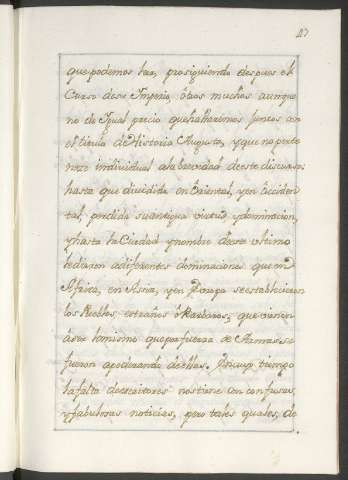 47
que podemos leer, prosiguiendo despues el
Curso de su Imperio, otros muchos aunque
no de Igual precio que hallaremos juntos con
el titulo de Historia Augusta, y que no perte
nece individual ala brevedad de este discurso:
hasta que dividida en Oriental, y en Acciden
tal, perdida su antigua virtud y dominacion,
y hasta la Ciudad y nombre de este ultimo
dieron a diferentes dominaciones que en
Africa, en Assia, y en Europa se establecieron
los Pueblos, estraños ò Barbaros, que
que por fuerza de Armas se
fueron apoderando de ellas. Cuyo tiempo
la falta de escritores nos tiene con confusas,
y fabulosas noticias, pero tales quales, de